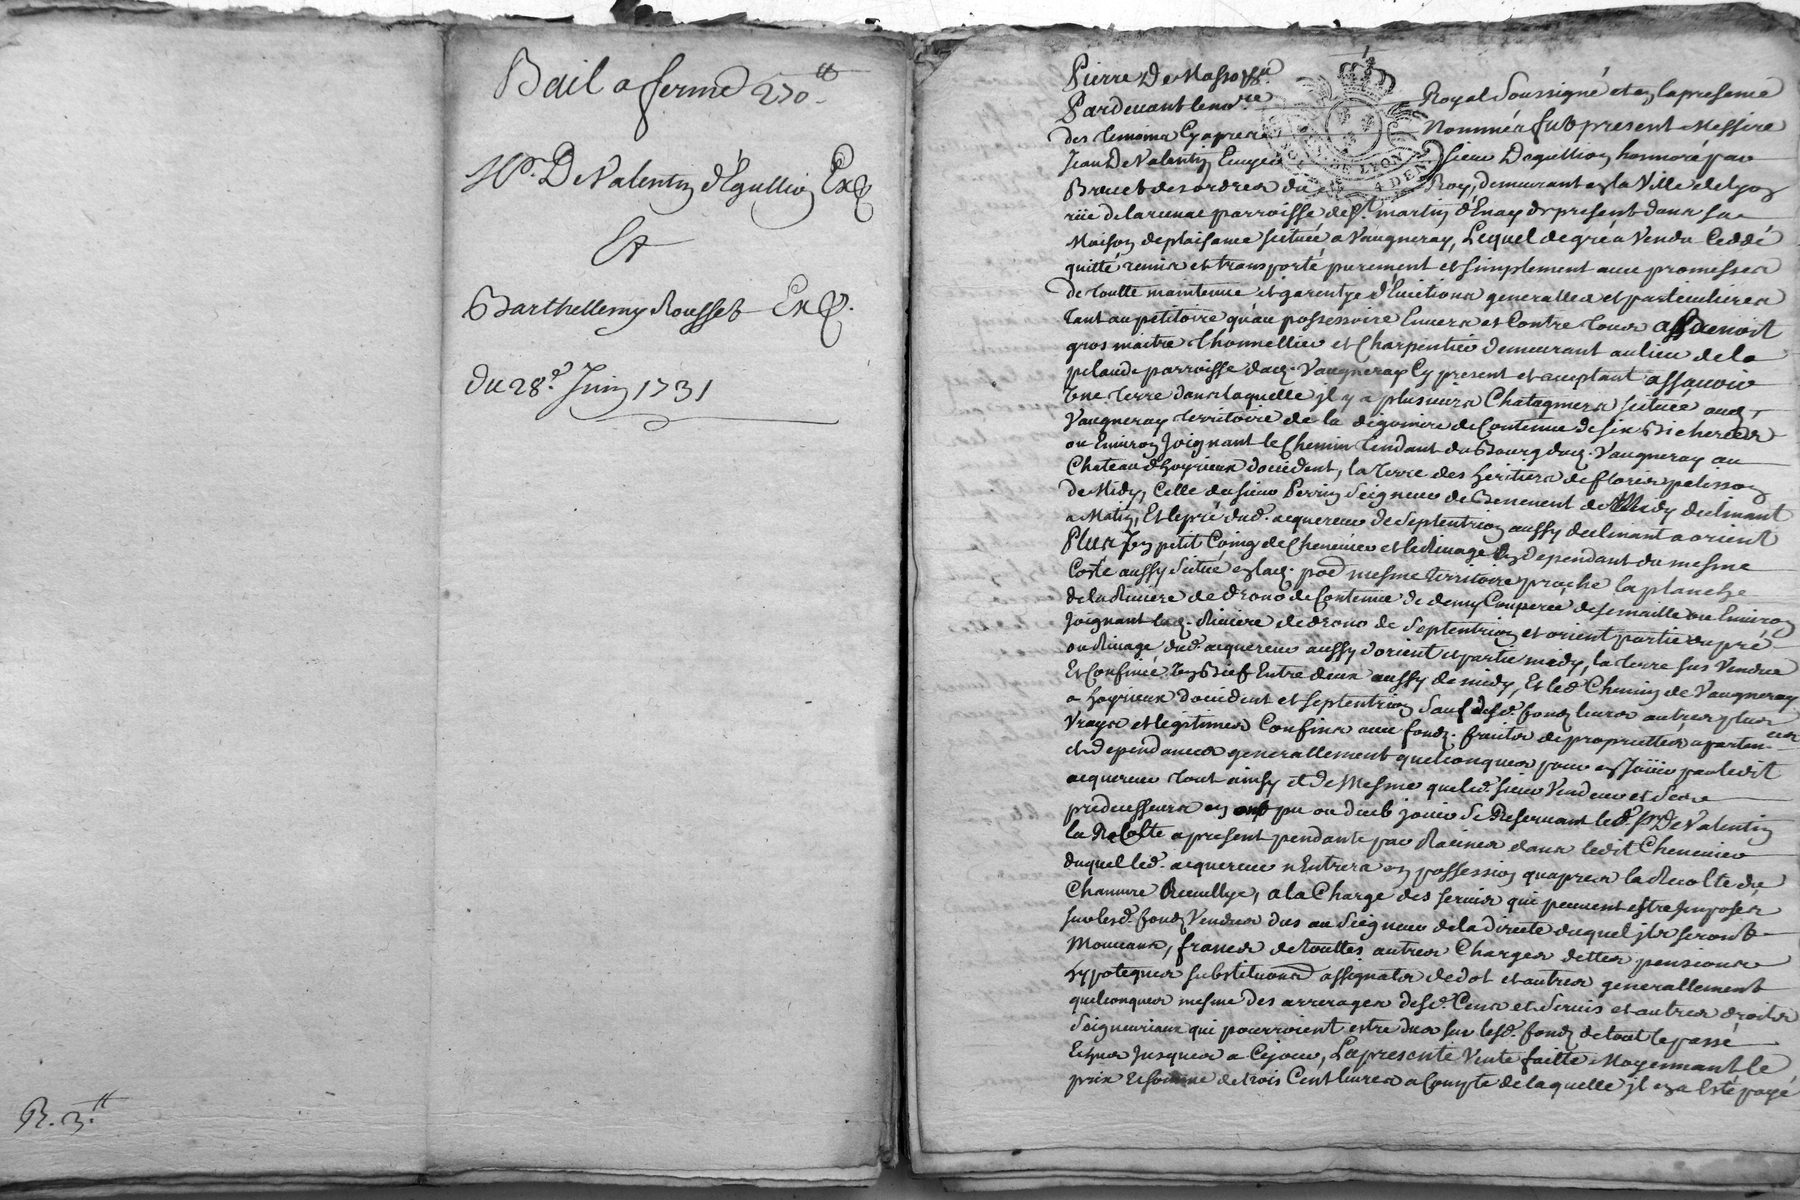 Bail a ferme 270.tt
Sr. De Valentin d'Eguillion Exp
Et
Barthellemy Rousset Exp.
du 28.e Juin 1731
R. 3.tt
Pierre De Masso
Pardevant le nore Royal soussigné et en la presence
des temoins cy apres nommés fut present Messire
Jean De Valentin Ecuyer sieur Deguillion honnoré par
Brevet des ordres du Roy, demeurant en la Ville de Lyon
rüe de parroisse de St. martin d'Enay de present dans sa
Maison de plaisance scituée a Vaugneray, Lequel de gré a Vendu Ceddé
quitté remis et transporté purement et simplement avec promesses
de toutte maintenue et garentye d'Evictions generalles et particulieres
tant au petitoire qu'au possessoire Envers et Contre tous a Benoit
gros maitre thonnellier et Charpentier demeurant au lieu de la
pelaude parroisse dud. Vaugneray Cy present et acceptant assavoir
Une terre dans laquelle jl y a plusieurs Chatagniers scituée aud.
Vaugneray territoire de la de Contenue de six Bicherées
ou Environ Joignant le Chemin tendant du Bourg dud. Vaugneray au
Chateau d'hoyrieux d'occident, la terre des heritiers de fleurie pelisson
de Midy, Celle du sieur Perrin seigneur de Benevent de Midy declinant
a Matin, Et le pré dud. acquereur de septentrion aussy declinant a orient
Plus Un petit Coing de Chenevier et le Rivage en dependant du mesme
Costé aussy scitué en lad. poe mesme territoire proche la planche
de la Riviere de drono de Contenue de demy Couperée de semaille ou Environ
Joignant lad. Riviere de drono de septentrion et orient partie du pré
ou Rivage dud. acquereur aussy d'orient et partie midy, la terre sus Vendue
Et Confinée Un Bief Entre deux aussy de midy, Et led. Chemin de Vaugneray
a hoyrieux d'occident et septentrion sauf desd. fondz leurs autres plus
Vrays et legitimes Confins avec fondz. fruits de proprietté apartenances
et dependances generallement quelconques pour en Joüir par ledit
acquereur tout ainsy et De Mesme que led. sieur Vendeur et ses
predecesseurs en ont pu ou dueb jouir se Reservant led. Sr. De Valentin
la Recolte a present pendante par Racines dans ledit Chenevier
duquel led. acquereur n'Entrera en possession qu'apres la Recolte du
Chanvre Recuillye, a la Charge des servis qui peuvent estre Imposés
sur lesd. fondz Vendus dus au seigneur de la directe duquel jls seront
Mouvants, francs de touttes autres Charges dettes pensions
hypoteques substitutions assignats de dot et autres generallement
quelconques mesme des arrerages desd. Cens et servis et autres droits
seigneuriaux qui pourroient estre dus sur lesd. fondz de tout le passé
Echus Jusques a Cejour, La presente Vente faitte Moyennant le
prix Et somme de trois Cent livres a Compte de laquelle jl en a Esté payé